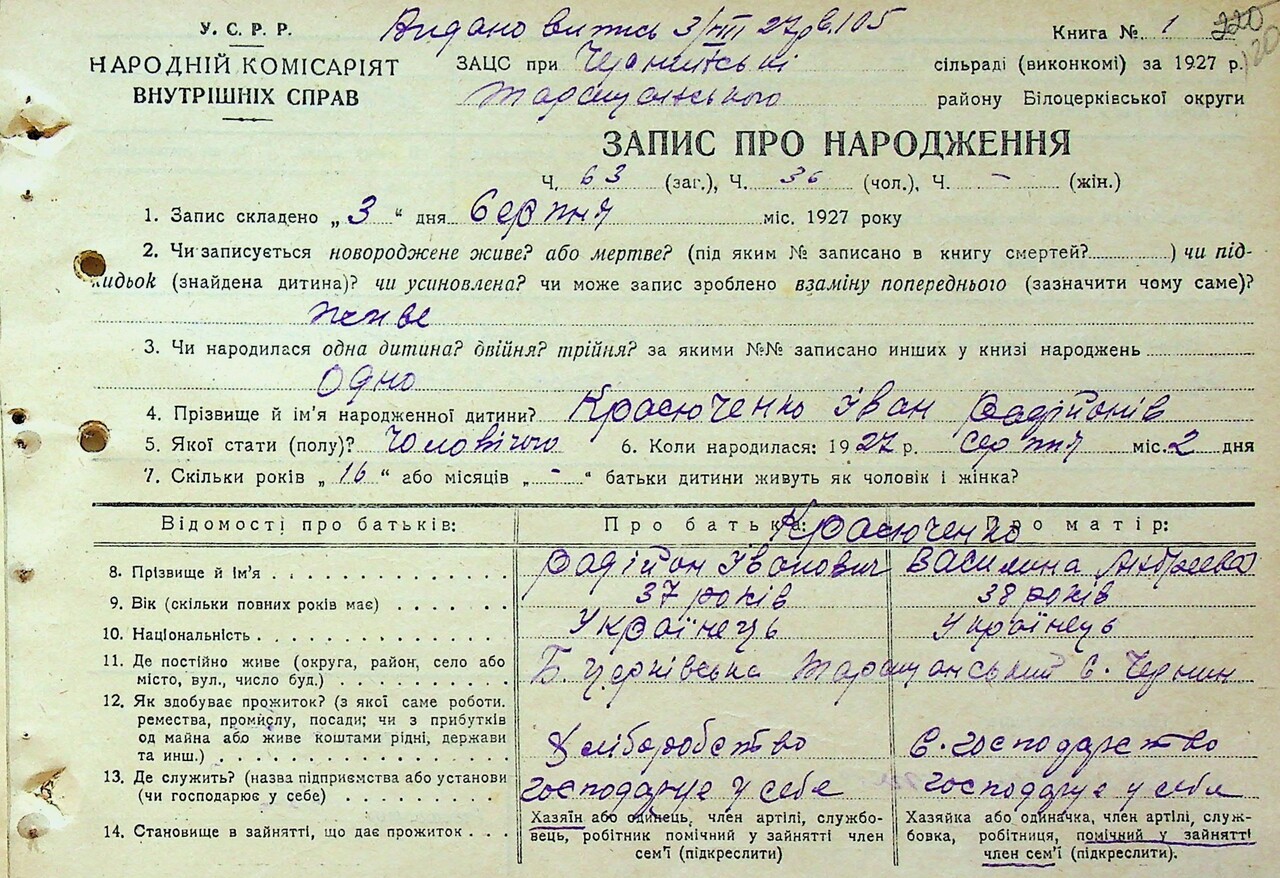 У. С. Р. Р.
НАРОДНІЙ КОМІСАРІЯТ
ВНУТРІШНІХ СПРАВ
Видано витись 3/VIII 27р в. 105
Книга №. 1
220
120
ЗАЦС при Чернинській сільраді (виконкомі) за 1927 р.
Таращанського району Білоцерківської округи
ЗАПИС ПРО НАРОДЖЕННЯ
Ч. 63 (заг.), Ч. 36 (чол.), Ч. - (жін.)
1. Запис складено „ 3 " дня Серпня міс. 1927 року
2. Чи записується новороджене живе? або мертве? (під яким № записано в книгу смертей?............) чи під-
кидьок (знайдена дитина)? чи усиновлена? чи може запис зроблено взаміну попереднього (зазначити чому саме)?
живе
3. Чи народилася одна дитина? двійня? трійня? за якими №№ записано инших у книзі народжень
Одно
4. Прізвище й ім'я народженної дитини? Красюченко Іван Радійонів
5. Якої стати (полу)? Чоловічого 6. Коли народилася: 1927 р. серпня міс. 2 дня
7. Скільки років „ 16 " або місяців „ - " батьки дитини живуть як чоловік і жінка?
Відомості про батьків: Про батька: Про матір:
Красюченко
8. Прізвище й ім'я Радійон Іванович Василина Андреева
9. Вік (скільки повних років має) 37 років 38 років
10. Національність Українець Українець
11. Де постійно живе (округа, район, село або
місто, вул., число буд.) Б. Церківська Таращанський с. Чернин
12. Як здобуває прожиток? (з якої саме роботи.
ремества, промислу, посади; чи з прибутків
од майна або живе коштами рідні, держави
та инш.) Хліборобство С. господарство
13. Де служить? (назва підприємства або установи
(чи господарює у себе) господарує у себе господарує у себе
14. Становище в зайнятті, що дає прожиток
Хазяїн або одинець, член артілі, службо-
вець, робітник помічний у зайнятті член
сем'ї (підкреслити)
Хазяйка або одиначка, член артілі, служ-
бовка, робітниця, помічний у зайнятті
член сем'ї (підкреслити).